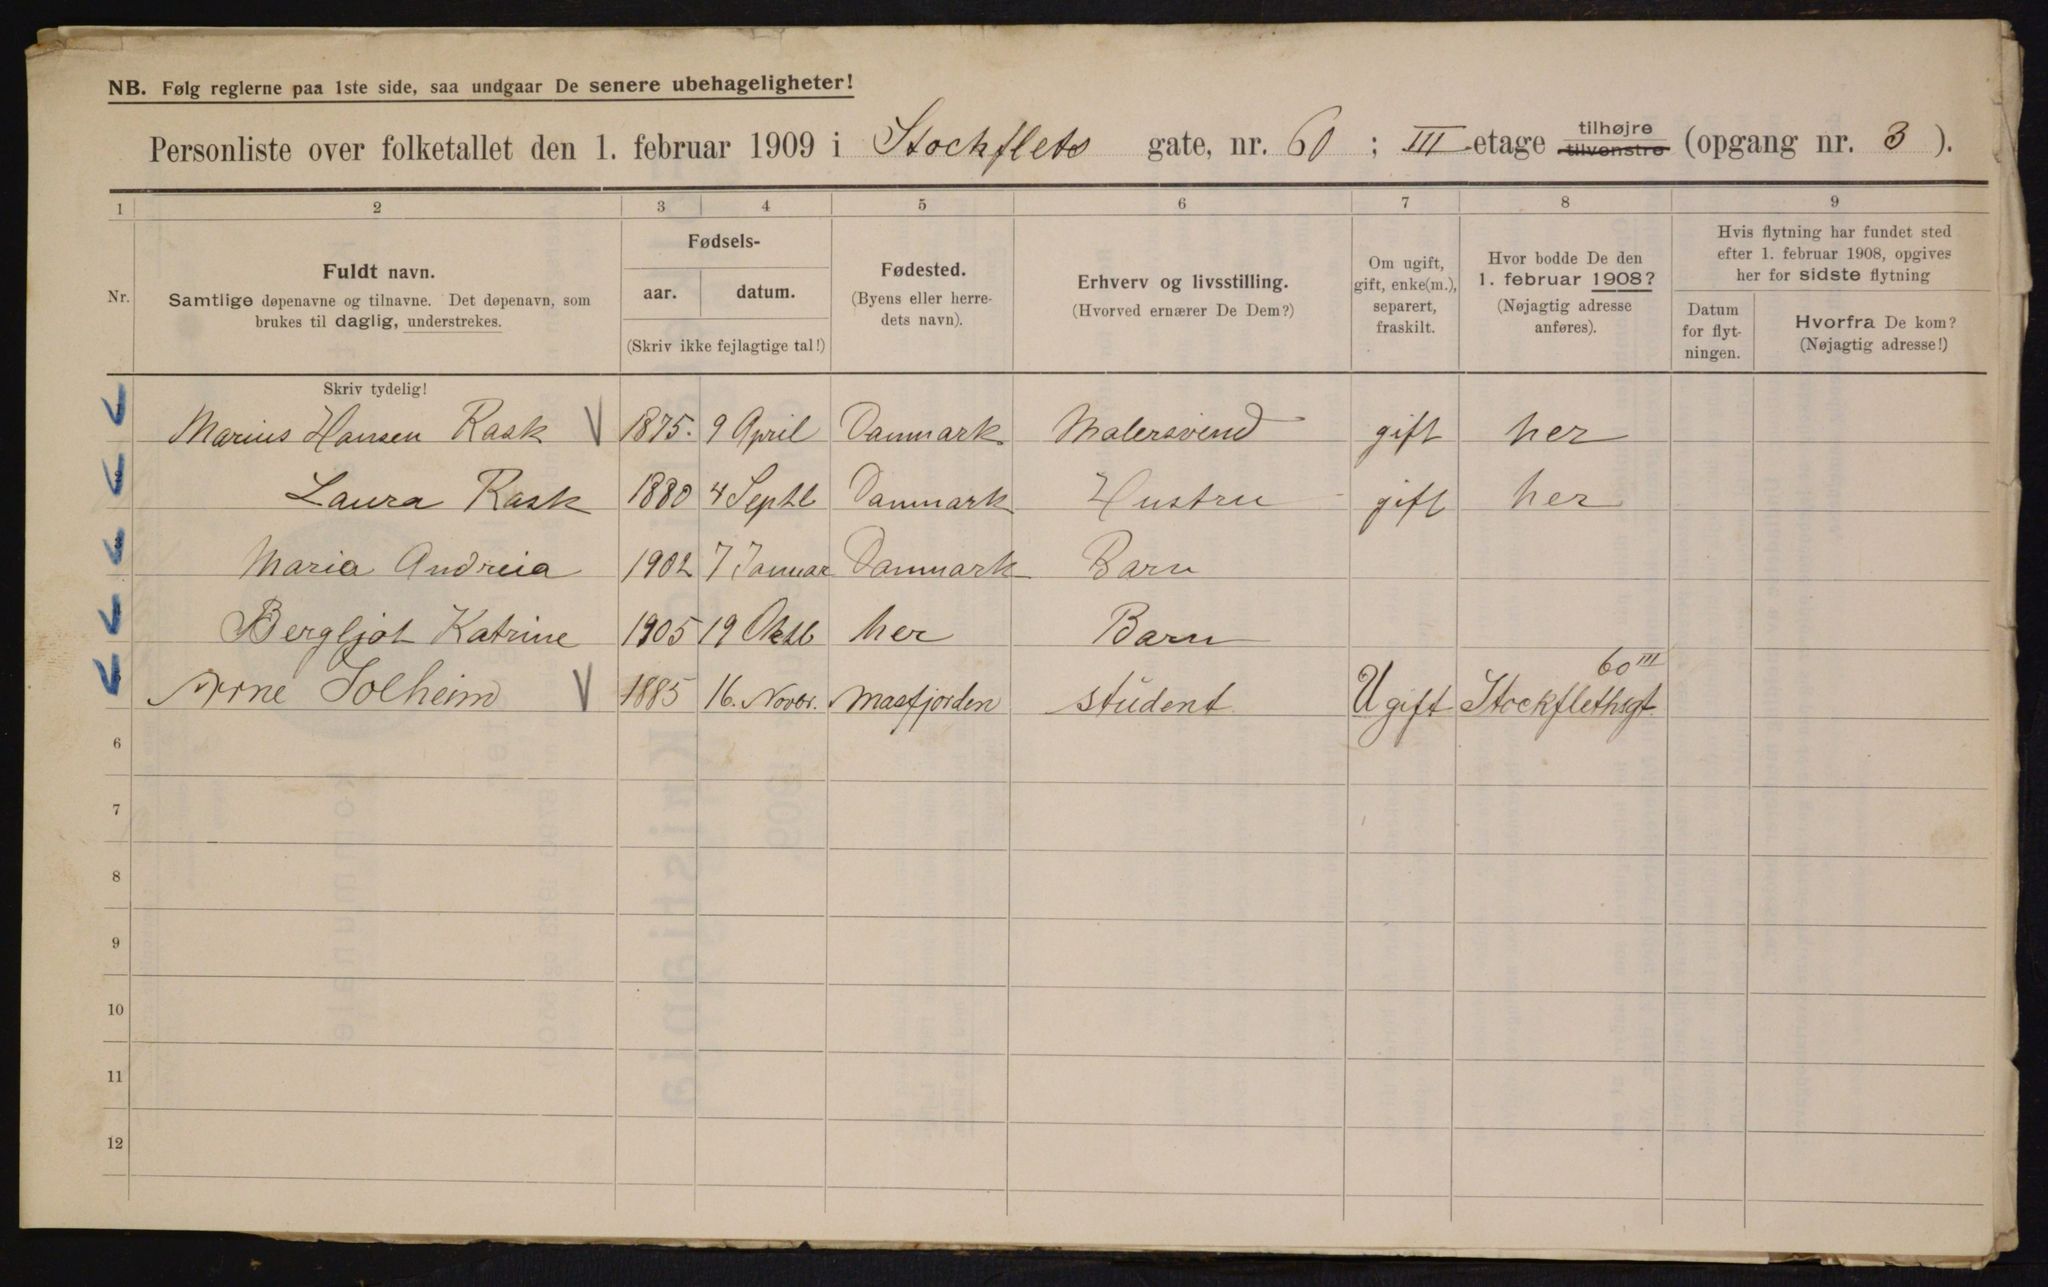 NB. Følg reglerne paa 1ste side, saa undgaar De senere ubehageligheter!
Personliste over folketallet den 1. februar 1909 i Stockflets gate, nr. 60 ; III etage tilhøjre tilvenstre (opgang nr. 3 ).
1 2 3 4 5 6 7 8 9
Nr.
Fuldt navn.
Samtlige døpenavne og tilnavne. Det døpenavn, som
brukes til daglig, understrekes.
Fødsels-
aar. datum.
(Skriv ikke fejlagtige tal!)
Fødested.
(Byens eller herre-
dets navn).
Erhverv og livsstilling.
(Hvorved ernærer De Dem?)
Om ugift,
gift, enke(m.),
separert,
fraskilt.
Hvor bodde De den
1. februar 1908?
(Nøjagtig adresse
anføres).
Hvis flytning har fundet sted
efter 1. februar 1908, opgives
her for sidste flytning
Datum
for flyt-
ningen.
Hvorfra De kom?
(Nøjagtig adresse!)
Skriv tydelig!
Marius Hansen Rask 1875. 9 April Danmark Malersvend gift her
Laura Rask 1880 4 Septb Danmark Hustru gift her
Maria Andreia 1902 7 Januar Danmark Barn
Bergljot Katrine 1905 19 Oktb her Barn
60 III
Arne Solheim 1885 16. Novbr. Masfjorden student Ugift Stockflethsgt.
6
7
8
9
10
11
12